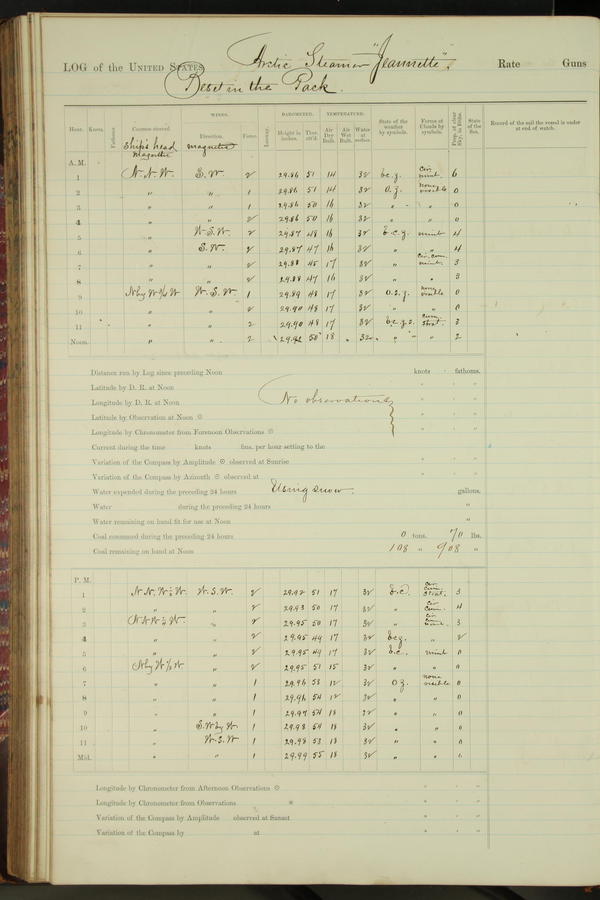 LOG of the UNITED STATES Arctic Steamer "Jeannette", Rate Guns
Beset in the Pack.
WINDS. BAROMETER. TEMPERATURE.
Hour. Knots. Fathoms. Courses steered. Direction. Force. Leeway. Height in inches. Ther. att'd. Air Dry Bulb. Air Wet Bulb. Water at surface. State of the weather by symbols. Forms of Clouds by symbols. Prop. of clear Sky, in 10ths. State of the Sea. Record of the sail the vessel is under at end of watch.
Ship's head magnetic magnetic
A. M.
1 N.N.W. S.W. 2 29.86 51 14 32 b.c.z. cir. cum. 6
2 " " 1 29.86 51 14 32 o.z. none visible 0
3 " " 1 29.86 50 16 32 " " 0
4 " " 2 29.86 50 16 32 " " 0
5 " W.S.W. 2 29.87 48 16 32 b.c.z. 4
6 " S.W. 2 29.87 47 16 32 " " 4
7 " " 2 29.88 45 17 32 " cir. cum. 3
8 " " 2 29.88 47 16 32 " " 3
9 N by W ½ W W.S.W. 1 29.89 48 17 32 none visible 0
10 " " 2 29.90 48 17 32 " " 0
11 " " 2 29.90 48 17 32 cum. strat. 3
Noon. " " 2 29.92 50 18 32 " " 2
Distance run by Log since preceding Noon knots fathoms.
Latitude by D. R. at Noon
Longitude by D. R. at Noon No observations
Latitude by Observation at Noon
Longitude by Chronometer from Forenoon Observations
Current during the time knots fms. per hour setting to the
Variation of the Compass by Amplitude observed at Sunrise
Variation of the Compass by Azimuth observed at
Water expended during the preceding 24 hours Using snow. gallons.
Water during the preceding 24 hours "
Water remaining on hand fit for use at Noon "
Coal consumed during the preceding 24 hours 0 tons. 70 lbs.
Coal remaining on hand at Noon 108 " 908 "
P. M.
1 W.S.W. 2 29.92 51 17 32 b.c. cir. cum. strat. 3
2 " " 2 29.93 50 17 32 " cir. cum. 4
3 " 2 29.95 50 17 32 " 3
4 " " 2 29.95 49 17 32 b.c.z. " 2
5 " " 2 29.95 49 17 32 b.c. 0
6 N by W ½ W " 2 29.95 51 15 32 " " 0
7 " " 1 29.96 53 12 32 o.z. none visible 0
8 " " 1 29.96 54 12 32 " " 0
9 " " 1 29.97 54 18 32 " " 0
10 " S.W by W. 1 29.98 54 18 32 " " 0
11 " W.S.W 1 29.98 53 18 32 " " 0
Mid. " " 1 29.99 55 18 32 " "
Longitude by Chronometer from Afternoon Observations
Longitude by Chronometer from Observations
Variation of the Compass by Amplitude observed at Sunset
Variation of the Compass by at